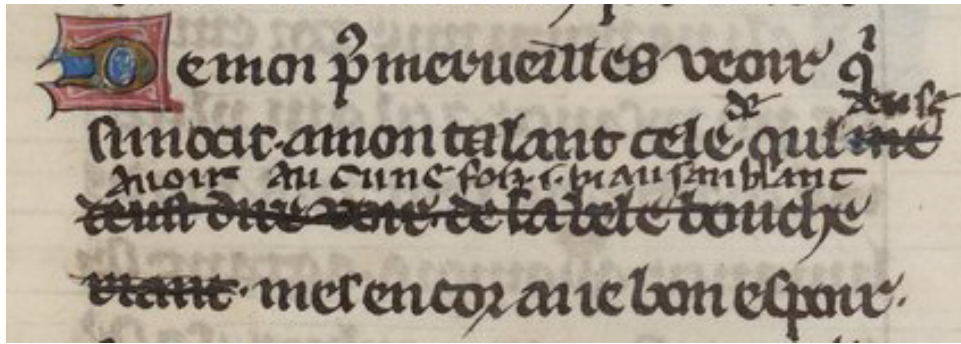 Demoi p̃ merueilles veoir qͥ
de deusse
simocit· amon talant cele· quil me
Auoir Aucune foiz ·i· biau sanblant
deust dire voir· de sa bele bouche
riant· mes encor aiie bon espoir·